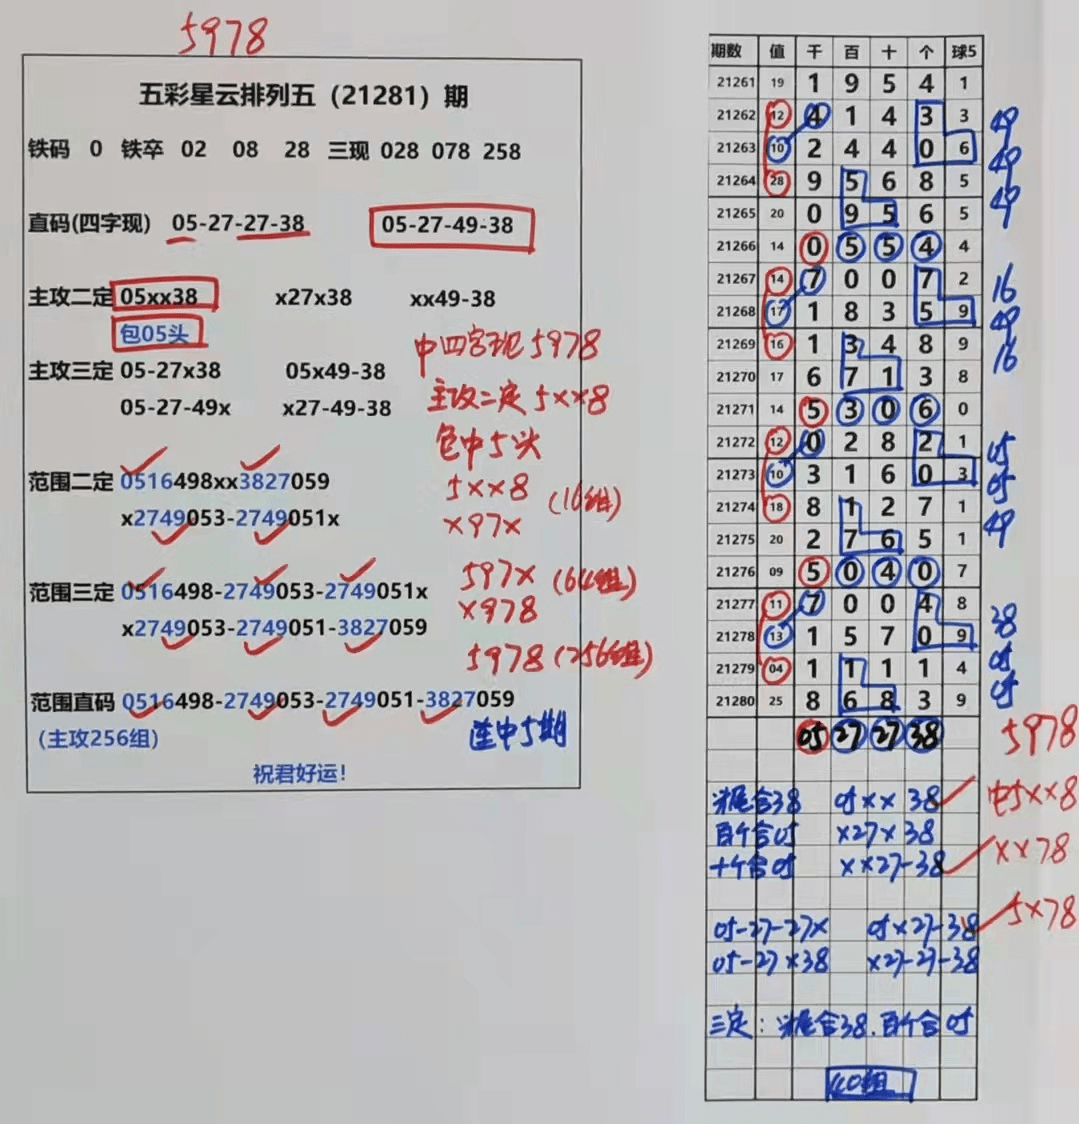 5978
五彩星云排列五（21281）期
铁码 0 铁卒 02 08 28 三现 028 078 258
直码(四字现) 05-27-27-38 05-27-49-38
主攻二定 05xx38 x27x38 xx49-38
包05头
中四字现5978
主攻三定 05-27x38 05x49-38
主攻二定5××8
05-27-49x x27-49-38
包中5头
范围二定 0516498xx3827059
5××8 (16组)
x2749053-2749051x
×97×
范围三定 0516498-2749053-2749051x
597× (64组)
x2749053-2749051-3827059
×978
5978(256组)
范围直码 0516498-2749053-2749051-3827059
(主攻256组)
连中5期
祝君好运!
期数 值 千 百 十 个 球5
21261 19 1 9 5 4 1
21262 12 4 1 4 3 3 49
21263 10 2 4 4 0 6 49
21264 28 9 5 6 8 5 49
21265 20 0 9 5 6 5
21266 14 0 5 5 4 4
21267 14 7 0 0 7 2 16
21268 17 1 8 3 5 9 49
21269 16 1 3 4 8 9 16
21270 17 6 7 1 3 8
21271 14 5 3 0 6 0
21272 12 0 2 8 2 1 05
21273 10 3 1 6 0 3 05
21274 18 8 1 2 7 1 49
21275 20 2 7 6 5 1
21276 09 5 0 4 0 7
21277 11 7 0 0 4 8 38
21278 13 1 5 7 0 9 05
21279 04 1 1 1 1 4 05
21280 25 8 6 8 3 9
05 27 27 38 5978
头尾合38 05×× 38 中5××8
百个合05 ×27×38
十个合05 ××27-38 ××78
05-27-27× 05×27-38 5×78
05-27×38 ×27-27-38
三定：头尾合38.百个合05
40组